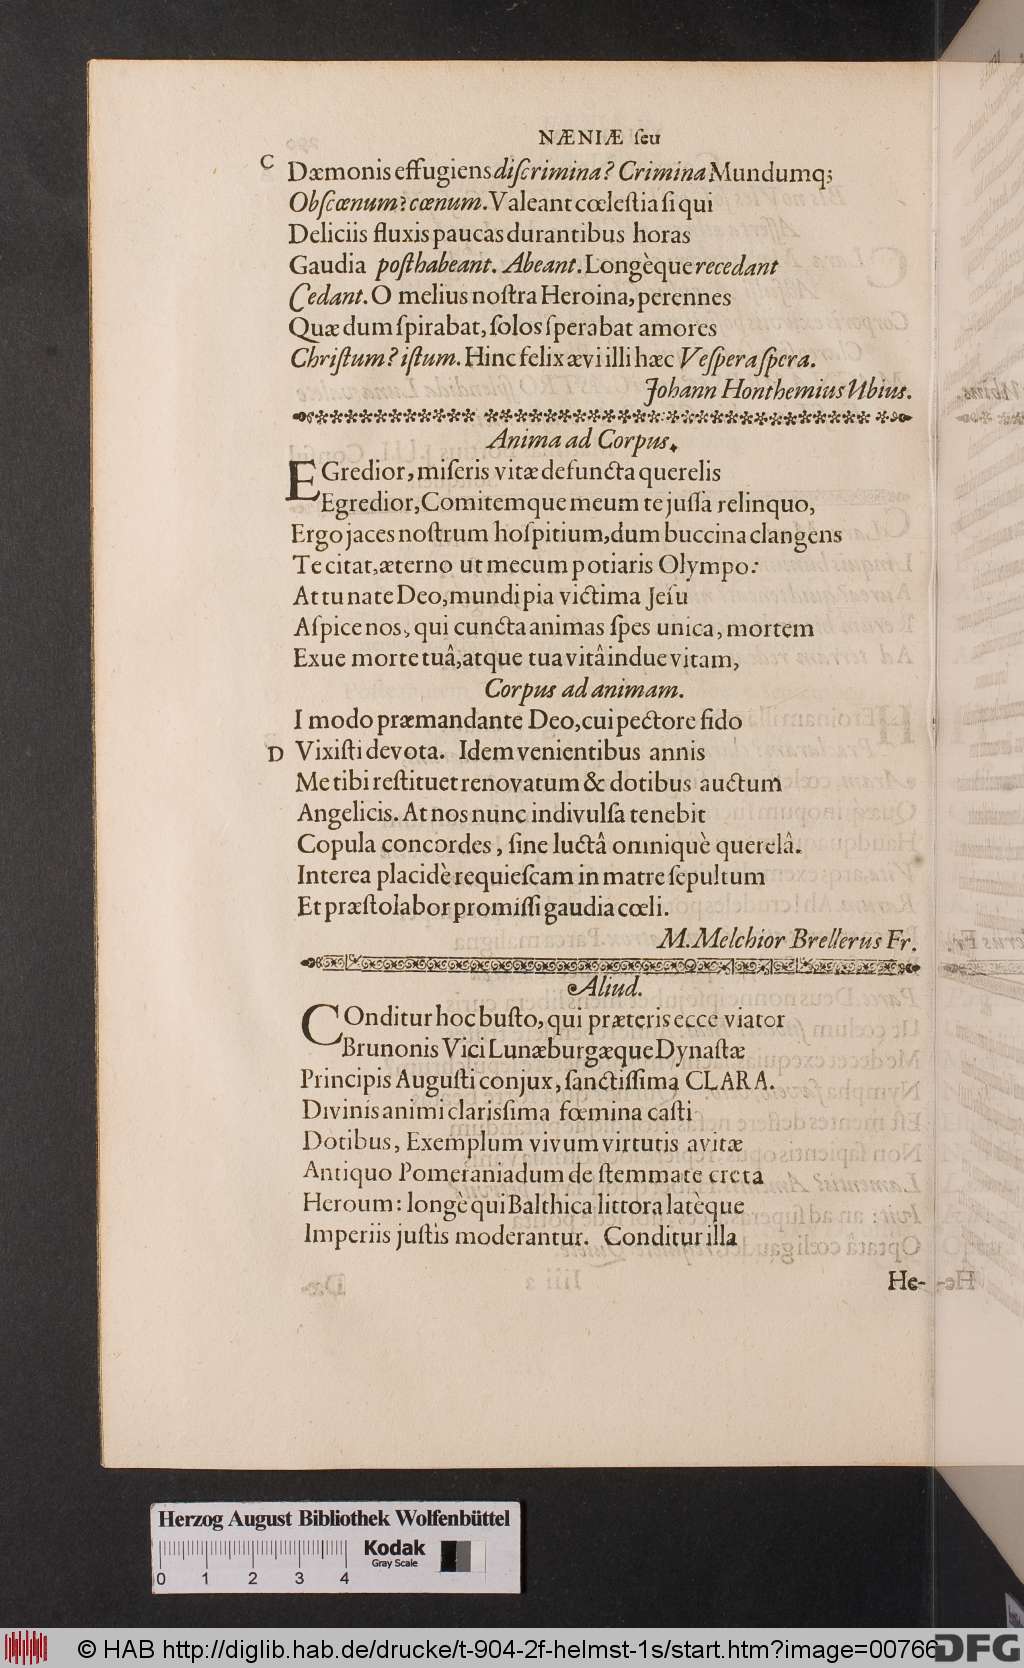 NÆNIÆ ſeu
C Dæmonis effugiens diſcrimina? Crimina Mundumq;
Obſcœnum? cœnum. Valeant cœleſtia ſi qui
Deliciis fluxis paucas durantibus horas
Gaudia poſthabeant. Abeant. Longèque recedant
Cedant. O melius noſtra Heroina, perennes
Quæ dum ſpirabat, ſolos ſperabat amores
Chriſtum? iſtum. Hinc felix ævi illi hæc Veſpera ſpera.
Johann Honthemius Ubius.
Anima ad Corpus.
EGredior, miſeris vitæ defuncta querelis
Egredior, Comitemque meum te juſſa relinquo,
Ergo jaces noſtrum hoſpitium, dum buccina clangens
Te citat, æterno ut mecum potiaris Olympo:
At tu nate Deo, mundi pia victima Jeſu
Aſpice nos, qui cuncta animas ſpes unica, mortem
Exue morte tuâ, atque tua vitâ indue vitam,
Corpus ad animam.
I modo præmandante Deo, cui pectore fido
D Vixiſti devota. Idem venientibus annis
Me tibi reſtituet renovatum & dotibus auctum
Angelicis. At nos nunc indivulſa tenebit
Copula concordes, ſine luctâ omniquè querelâ.
Interea placidè requieſcam in matre ſepultum
Et præſtolabor promiſſi gaudia cœli.
M. Melchior Brellerus Fr.
Aliud.
COnditur hoc buſto, qui præteris ecce viator
Brunonis Vici Lunæburgæque Dynaſtæ
Principis Auguſti conjux, ſanctiſſima CLARA.
Divinis animi clarisſima fœmina caſti
Dotibus, Exemplum vivum virtutis avitæ
Antiquo Pomeraniadum de ſtemmate creta
Heroum: longè qui Balthica littora latèque
Imperiis juſtis moderantur. Conditur illa
He-
Herzog August Bibliothek Wolfenbüttel
Kodak
Gray Scale
0 1 2 3 4
© HAB http://diglib.hab.de/drucke/t-904-2f-helmst-1s/start.htm?image=00766
DFG